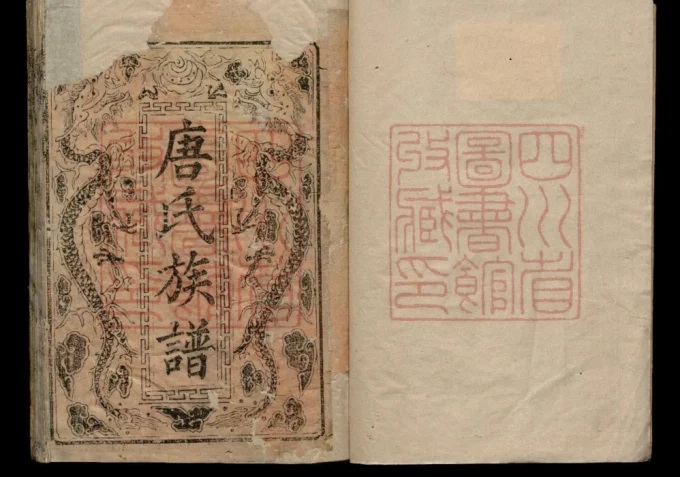 四川省
圖書館
收藏印
唐氏族譜